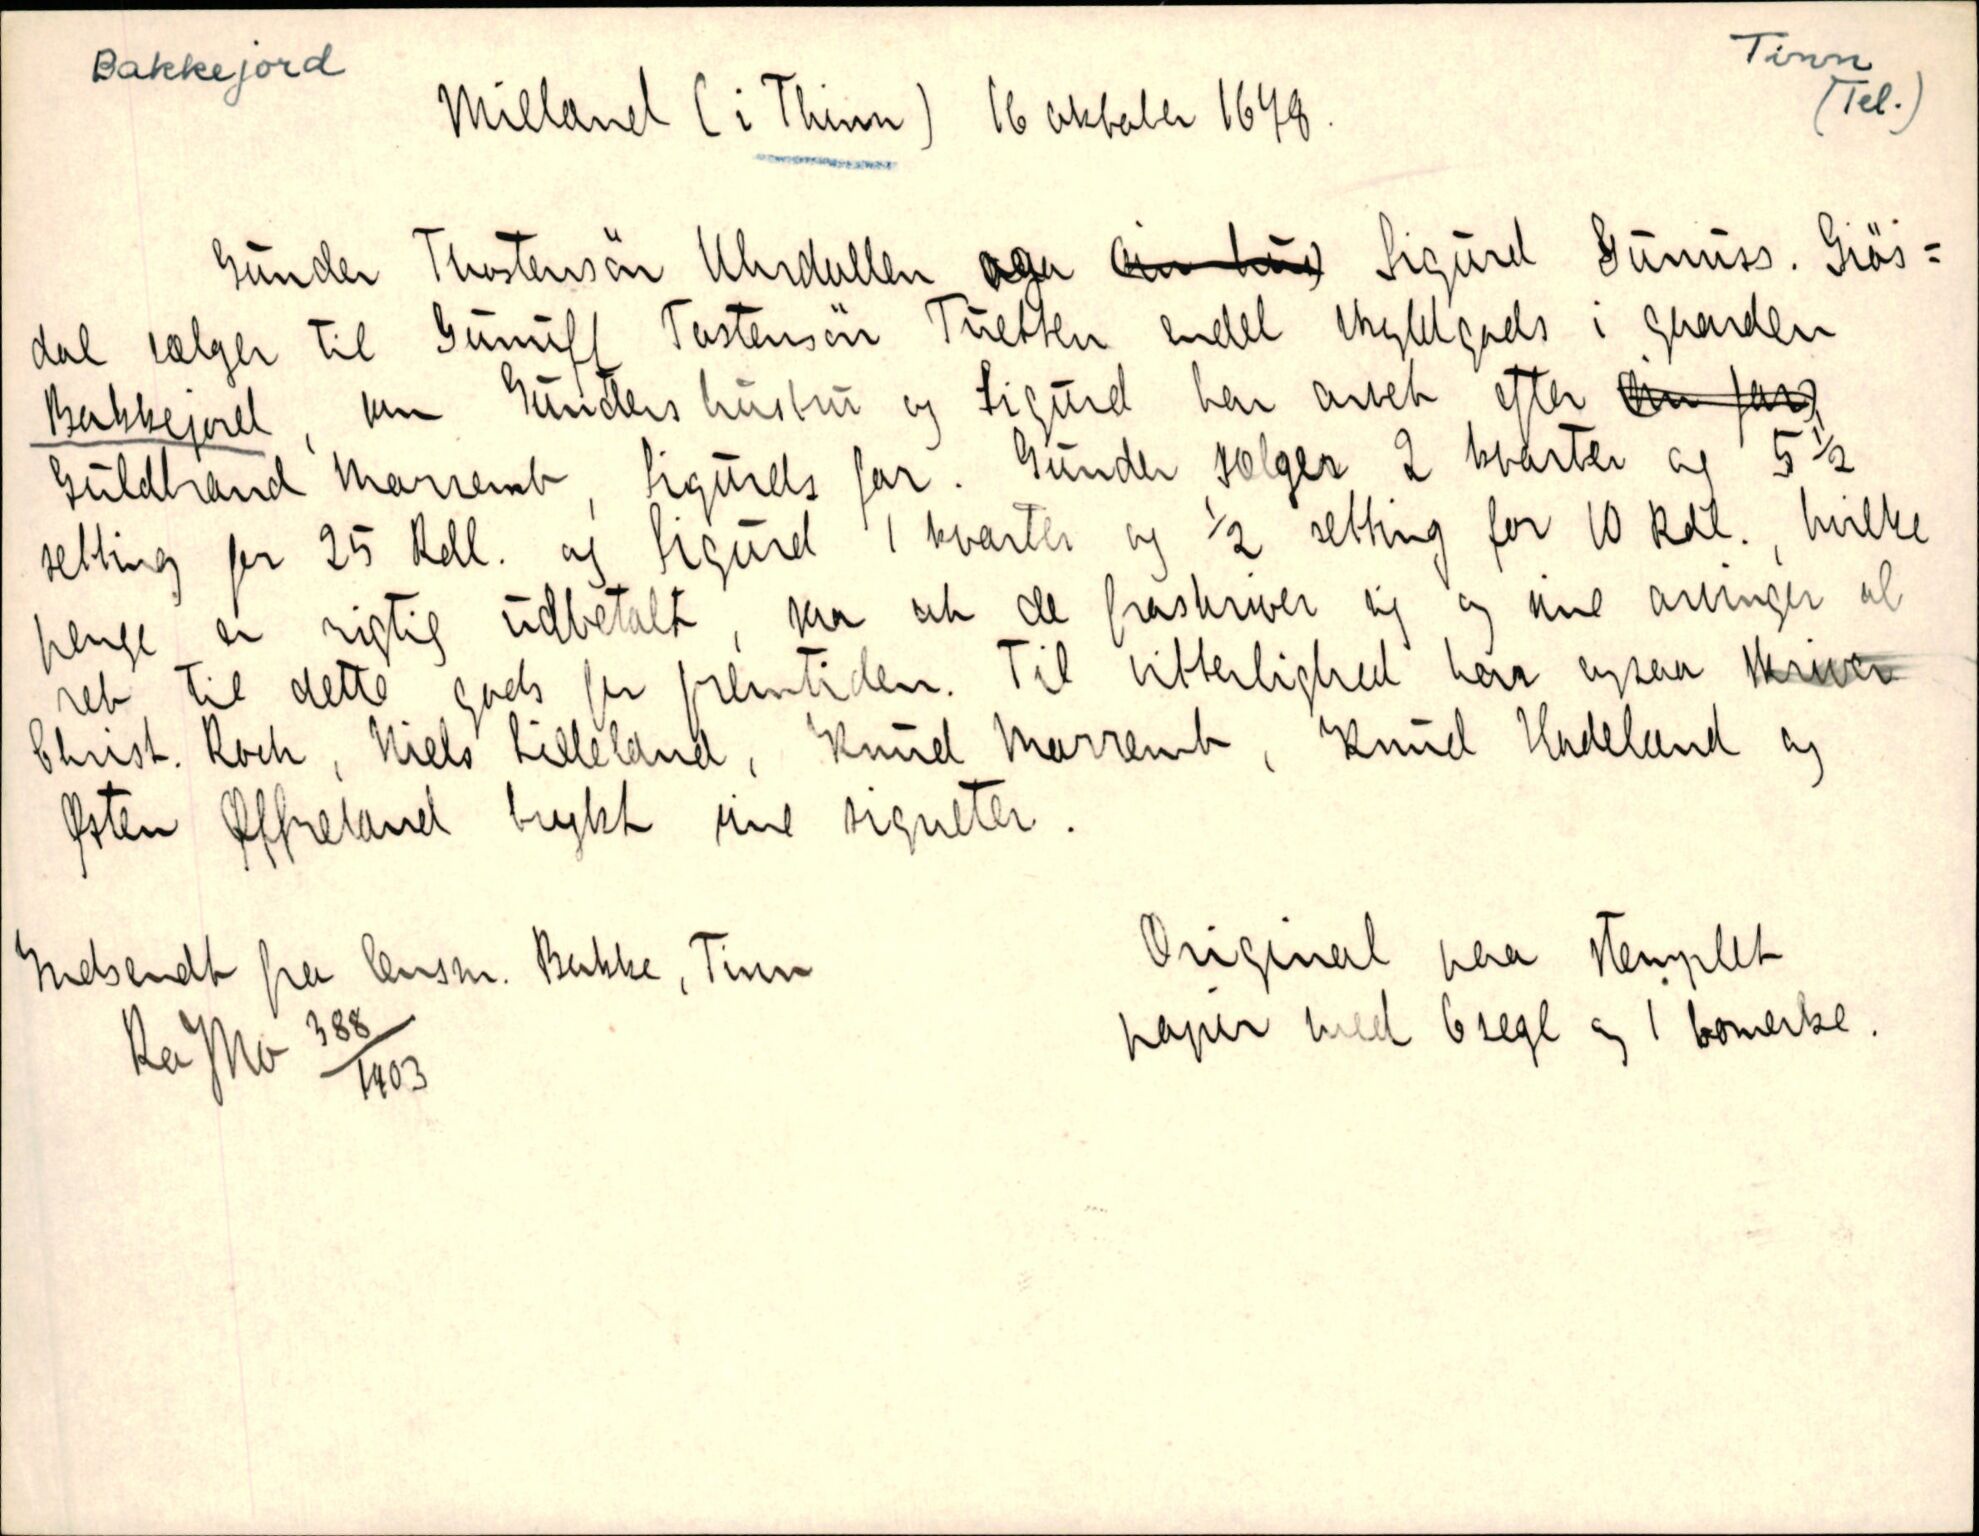 Bakkejord
Tinn
(Tel.)
Milland (i Thinn) 16 oktober 1678.
Gunder Thostensön Uhrdallen og Sigurd Gunuss. Giös=
dal sælger til Gunulf Tostensön Tuetten endel skyldgods i gaarden
Bakkejord, som Gunders hustru og Sigurd har arvet efter
Guldbrand Marremb, Sigurds far. Gunder sælger 2 kvarter og 5 1/2
setting for 25 Rdl. og Sigurd 1 kvarter og 1/2 setting for 10 Rdl., hvilke
penge er rigtig udbetalt, saa at de fraskriver sig og sine arvinger al
ret til dette gods for fremtiden. Til vitterlighed har ogsaa skriver
Christ. Koch, Niels Lilleland, Knud Marremb, Knud Hadeland og
Østen Øffreland brykt sine signeter.
Indsendt fra lensm. Bakke, Tinn
Ra JNo 388/1903
Original paa stemplet
papir med 6 segl og 1 bomerke.